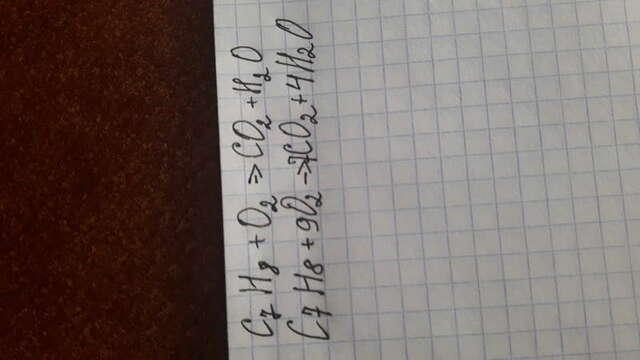 C₇H₈ + O₂ ⇒ CO₂ + H₂O
C₇H8 + 9O₂ → 7CO₂ + 4H₂O